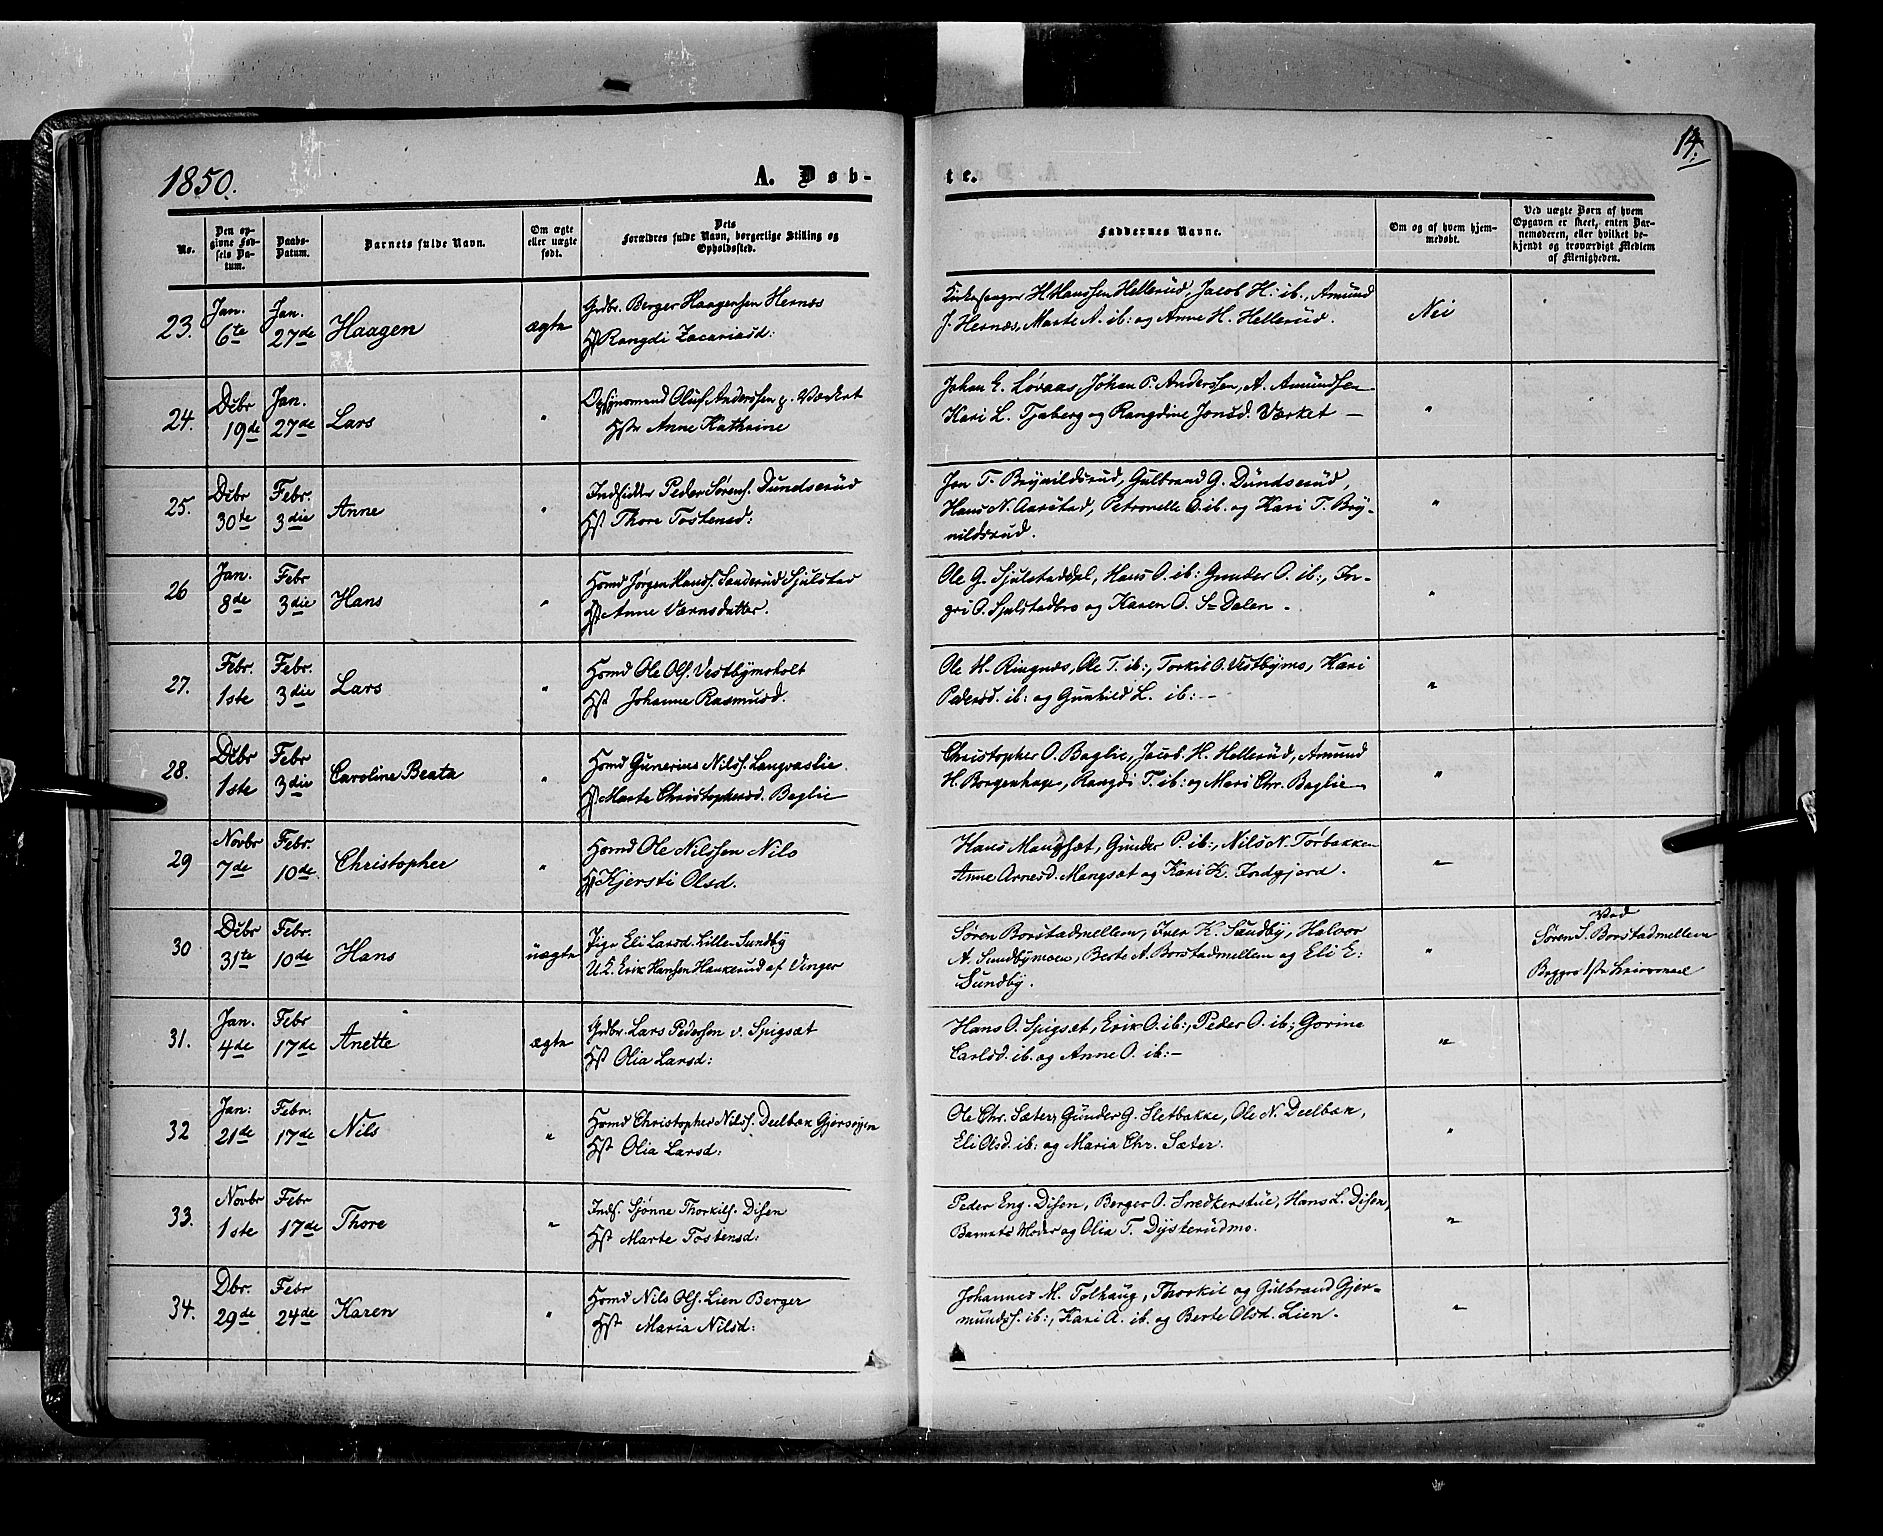 1850.
A. Døb-
te.
14.
No.
Den op-
givne Fød-
sels Da-
tum.
Daabs-
Datum.
Barnets fulde Navn.
Om ægte
eller uægte
født.
Dets
Forældres fulde Navn, borgerlige Stilling og
Opholdssted.
Faddernes Navne.
Om og af hvem hjem-
medøbt.
Ved uægte Børn af hvem
Opgaven er skeet, enten Bar-
nemoderen, eller hvilket be-
kjendt og troværdigt Medlem
af Menigheden.
23. Jan. 6te Jan. 27de Haagen ægte
Grdbr. Berger Haagensen Hernæs
Hst Rangdi Zacariasd:
Kirkesanger H. Hanssen Hellerud, Jacob H: ib., Amund
J. Hernæs, Marte A. ib: og Anne H. Hellerud.
Nei
24. Dcbr 19de Jan. 27de Lars "
Opsynsmand Oluf Anderssen p. Værket
Hstr Anne Kathrine
Johan E. Løvaas, Johan P. Anderssen, A. Amundsen
Kari L. Tjaberg og Rangdine Jonsd. Værket —
"
25. Dcbr 30te Febr. 3die Anne "
Indsidder Peder Sørens. Dundserud
Hst Thore Tostensd:
Jon T. Brynildsrud, Gulbrand G. Dundserud,
Hans N. Aarstad, Petronelle O. ib. og Kari T. Bry-
nildsrud.
"
26 Jan. 8de Febr 3die Hans "
Homd Jørgen Hans. Sanderud Sjulstad
Hst Anne Værnsdatter.
Ole G. Sjulstadspl, Hans O. ib: Gunder O. ib:, In-
gri O. Sjulstadbro og Karen O. S= Dalen -
"
27. Febr. 1ste Febr. 3die Lars "
Homd Ole Ols. Vestbymoholt
Hst Johanne Rasmusd.
Ole H. Ringnæs, Ole T. ib:, Torkil O. Vestbymo, Kari
Pedersd. ib: og Gunhild L. ib: -
"
28. Dcbr 1ste Febr 3die Caroline Beata "
Homd Gunerius Nilss. Langraslie
Hst Marte Christophersd. Baglie
Christopher O. Baglie, Jacob H. Hellerud, Amund
H. Borgenhage, Rangdi T. ib: og Mari Chr. Baglie
"
29 Novbr 7de Febr. 10de. Christopher "
Homd Ole Nilssen Nilo
Hst Kjersti Olsd.
Hans Mangsæt, Gunder P. ib:, Nils N. Tørbakken
Anne Arnesd. Mangsæt og Kari K.
"
30 Dcbr 31te Febr. 10de Hans uægte
Pige Eli Larsd. Lille-Sundby
U.K. Erik Hansen Haukerud af Vinger
Søren Borstadmellem, Iver K. Sundby, Halvor
A. Sundbymoen, Berte A. Borstadmellem og Eli E:
Sundby.
"
Ved
Søren S. Borstadmellem
Begges 1ste Leiermaal
31. Jan. 4de Febr 17de Anette ægte
Grdbr. Lars Pedersen v. Spigsæt
Hst Olia Larsd:
Hans O. Spigset, Erik O. ib:, Peder O. ib; Gorine
Carlsd. ib. og Anne O. ib: -
"
32 Jan: 21de Febr. 17de Nils "
Homd Christopher Nilss. Deelbæk Gjersøyen
Hst Olia Larsd:
Ole Chr. Sæter, Gunder G. Sletbakke, Ole N. Deelbæk,
Eli Olsd. ib: og Maria Chr. Sæter.
"
33. Novbr 1ste Febr 17de Thore "
Inds. Sjønne Thorkils. Disen
Hst Marte Tostensd:
Peder Eng. Disen, Berger O. Snedkerstue, Hans L. Disen,
Barnets Moder og Olia T. Dysterudmo.
"
34. Dbr. 29de Febr 24de Karen "
Homd Nils Ols. Lien Berger
Hst Maria Nilsd:
Johannes M. Tolhaug, Thorkil og Gulbrand Gjer-
mundss. ib:, Kari A. ib. og Berte Olsd. Lien -
"